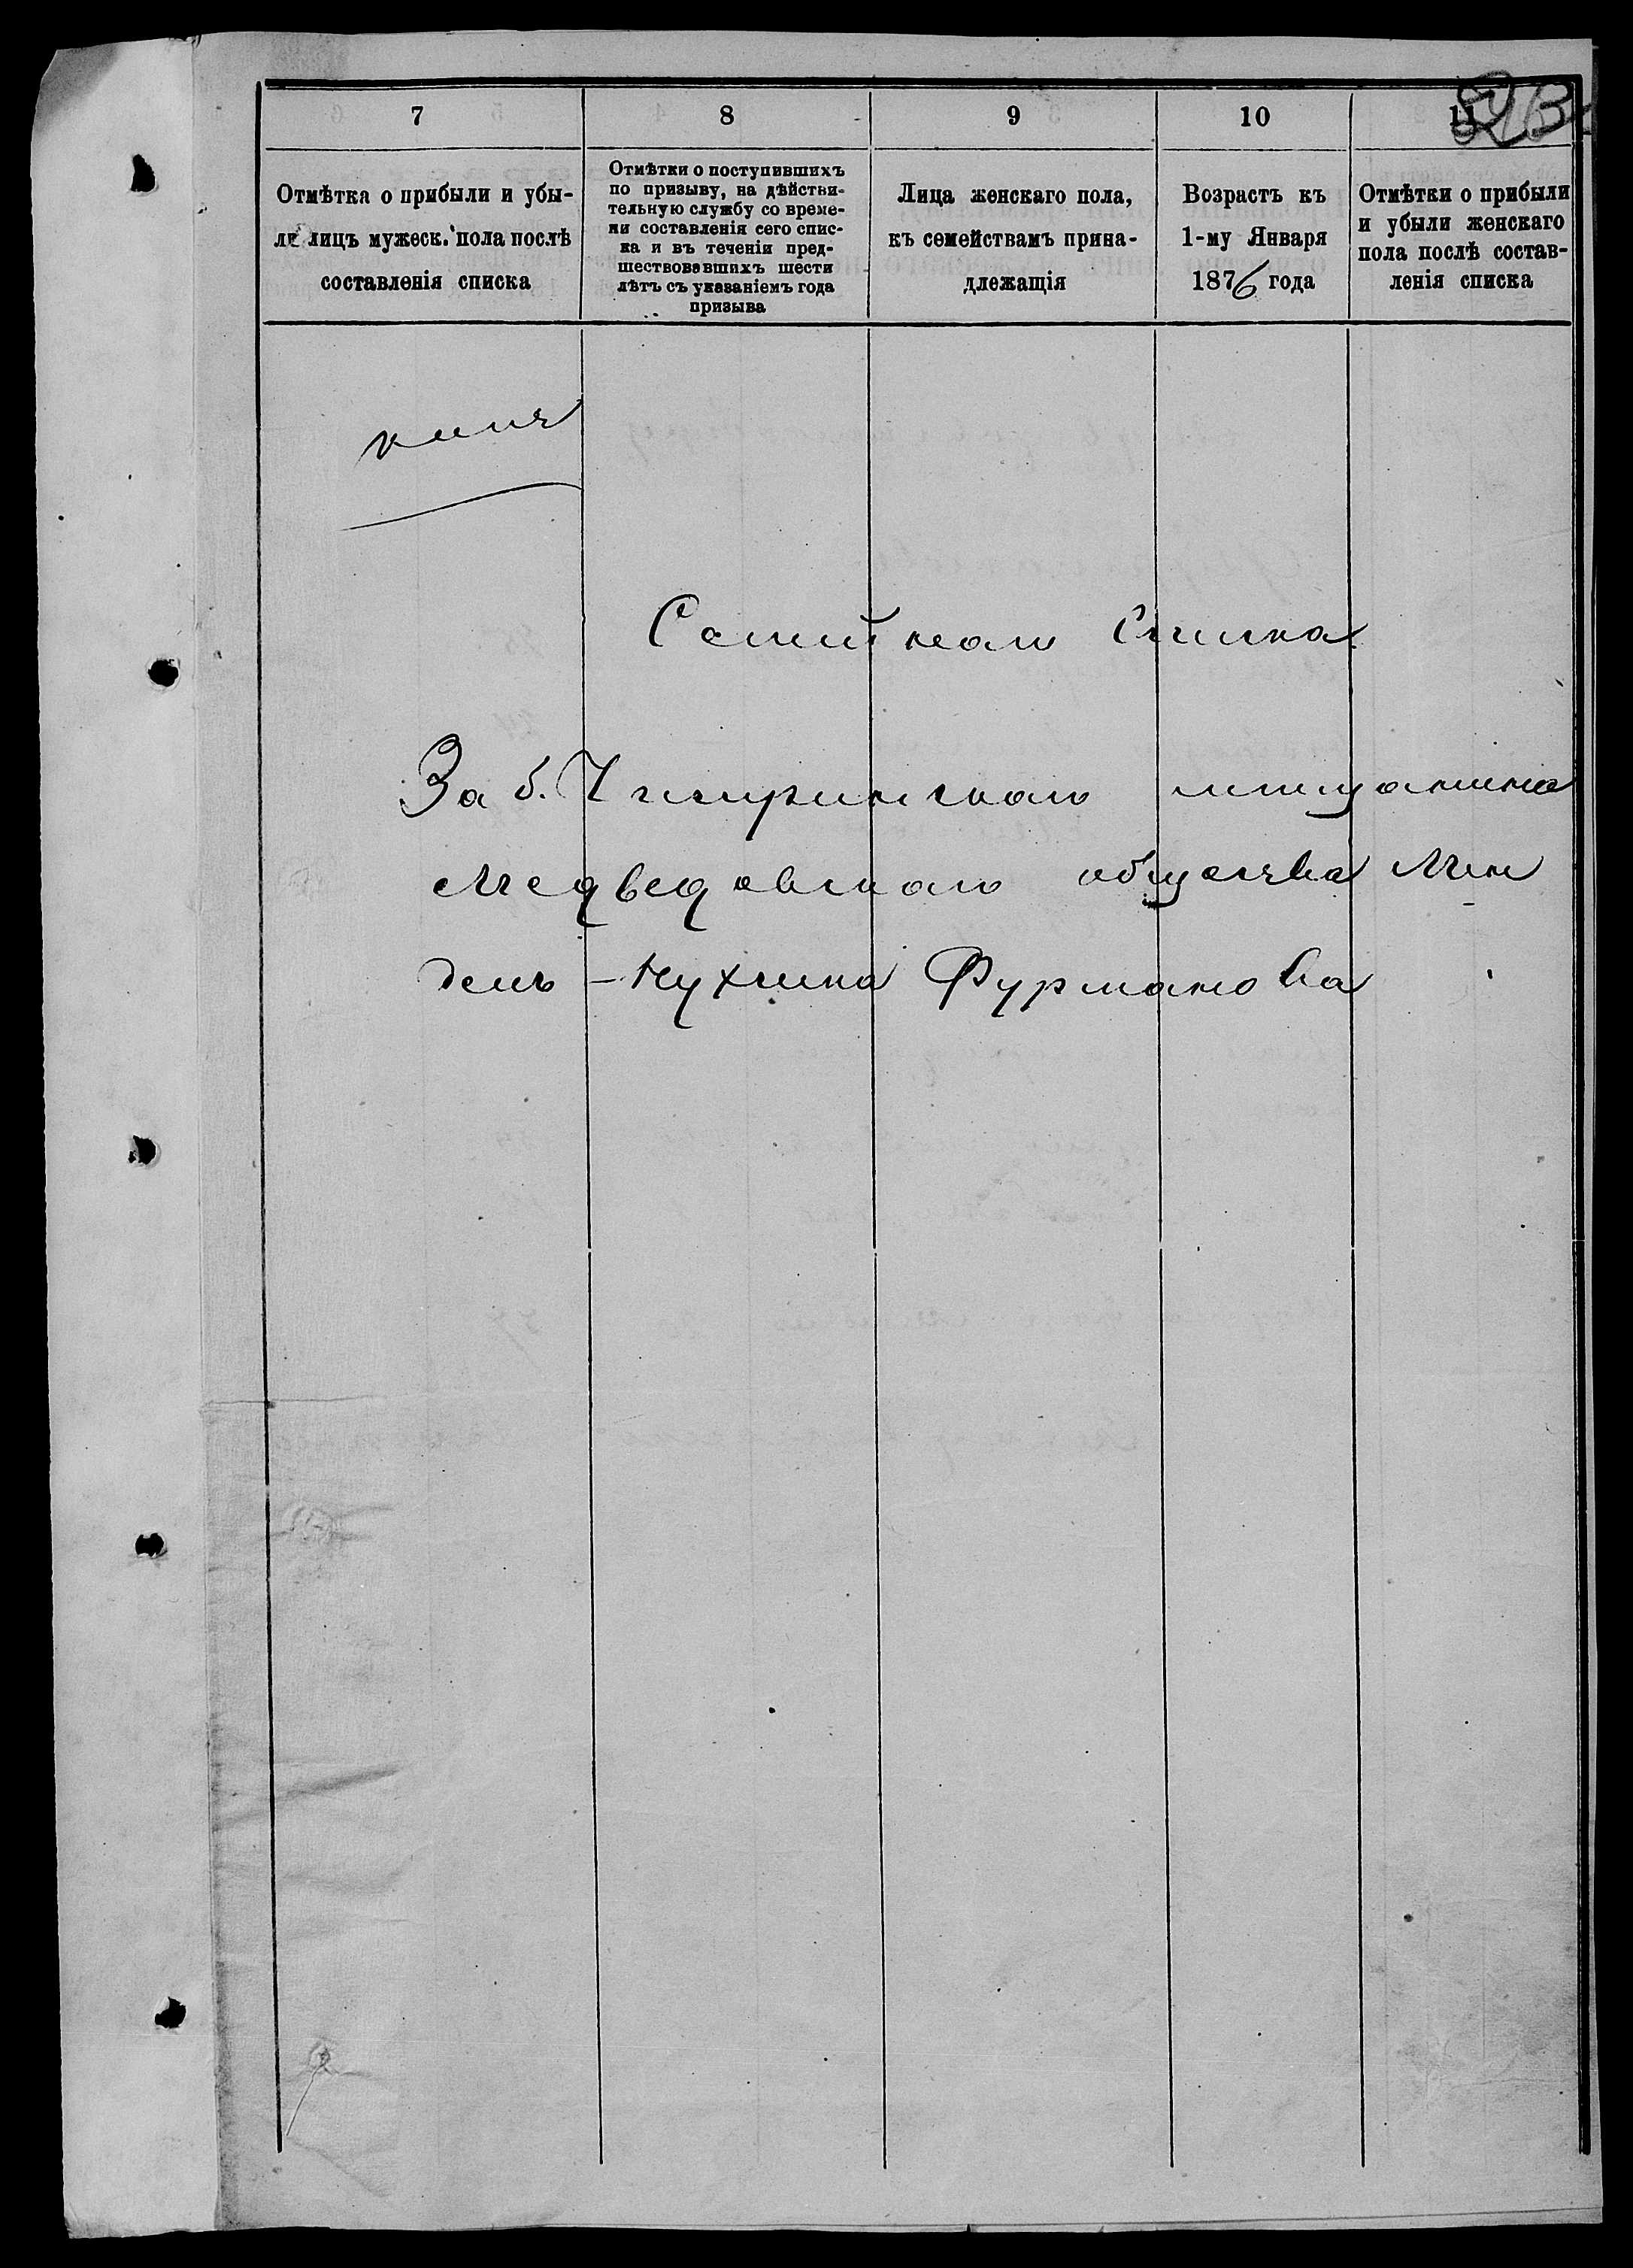 7 8 9 10 11
Отмѣтка о прибыли и убы-
ли лицъ мужеск. пола послѣ
составленія списка
Отмѣтки о поступившихъ
по призыву, на дѣйстви-
тельную службу со време-
ни составленія сего спис-
ка и въ теченіи пред-
шествовавшихъ шести
лѣтъ съ указаніемъ года
призыва
Лица женскаго пола,
къ семействамъ прина-
длежащія
Возрастъ къ
1-му Января
1876 года
Отмѣтки о прибыли
и убыли женскаго
пола послѣ состав-
ленія списка
Семейнаго Списка
За б. Чигиринскаго мещанина
Медведовскаго общества Мен
дель-Нухима Фурманова